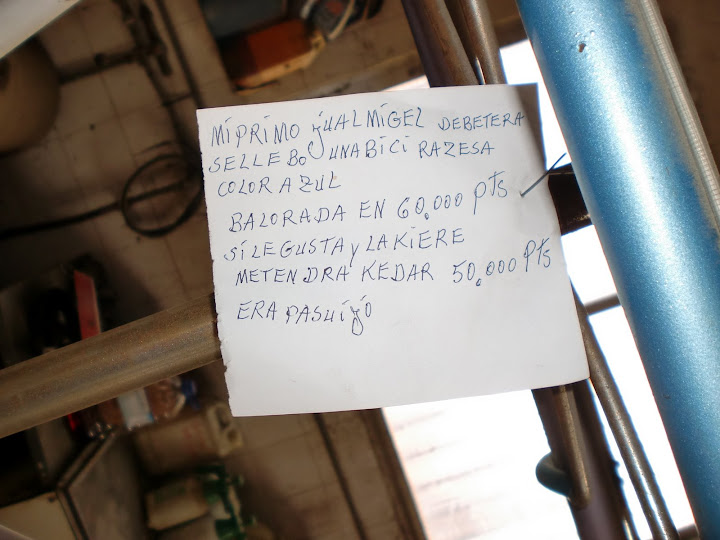 MI PRIMO JUALMIGEL DEBETERA
SELLEBO UNA BICI RAZESA
COLOR AZUL
BALORADA EN 60.000 PTS
SI LE GUSTA Y LA KIERE
METENDRA KEDAR 50.000 PTS
ERA PASUIJO